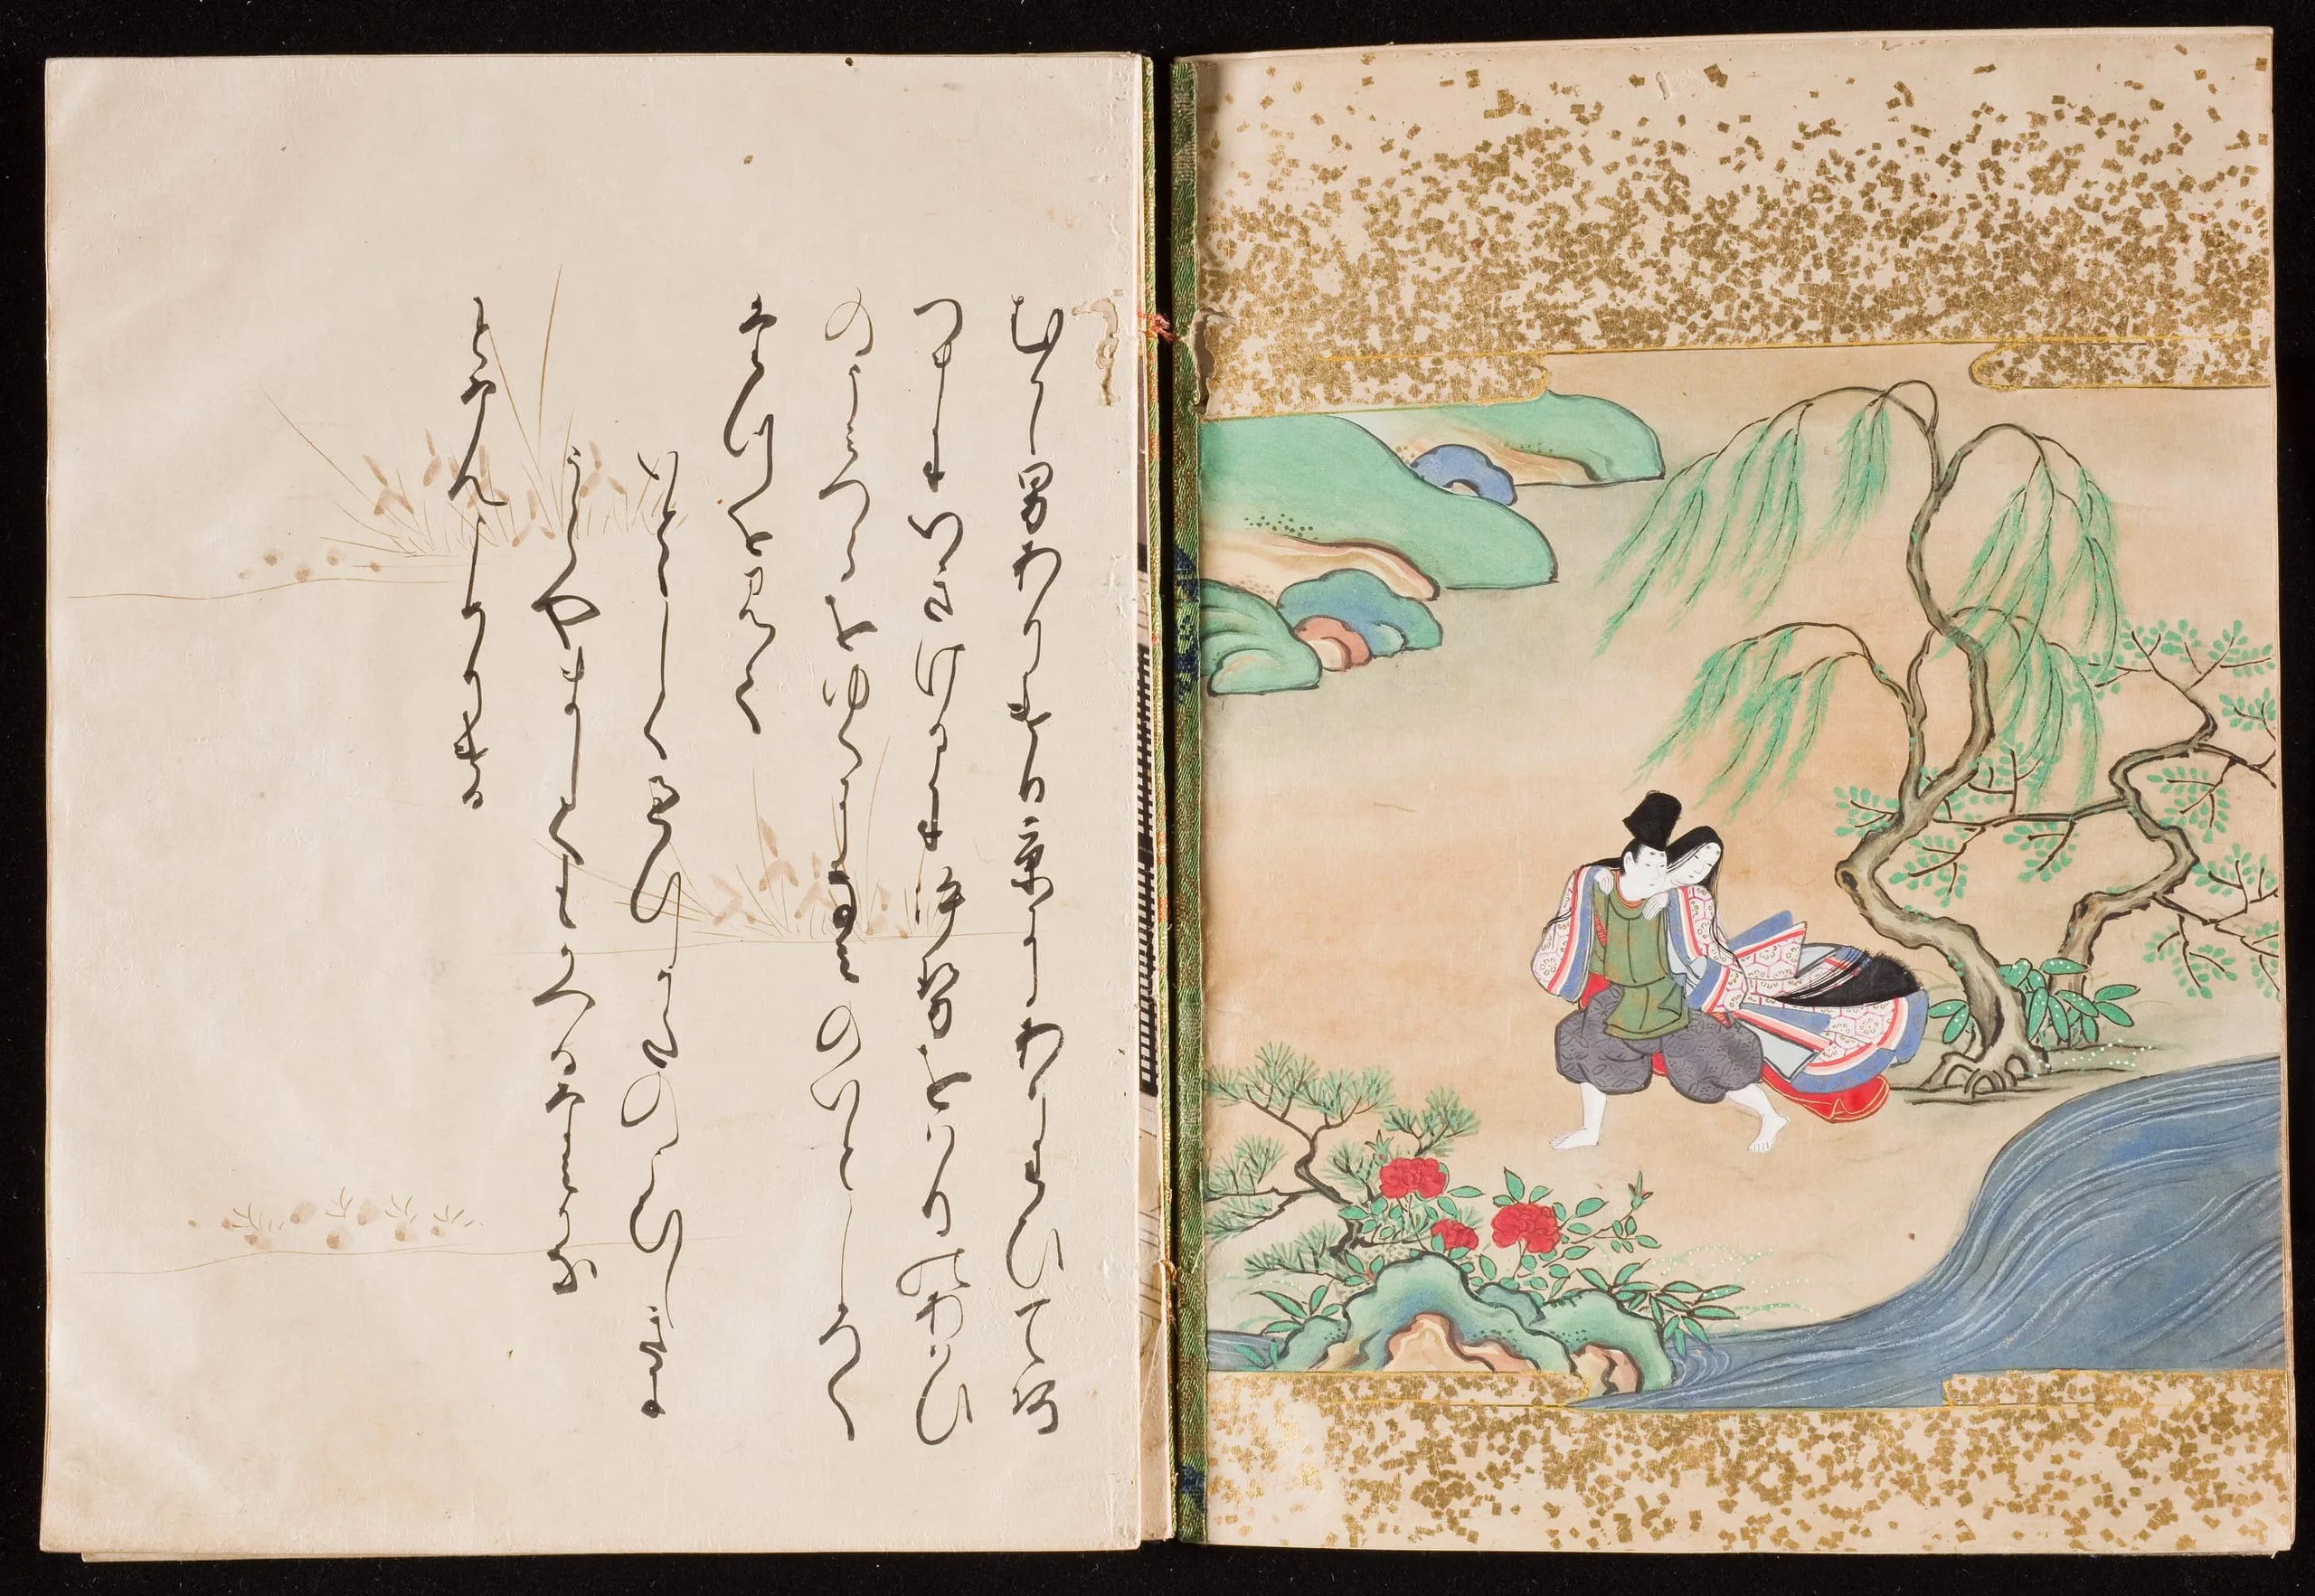 むかし男ありけり京にありわひてあ
つまにいきけるに伊勢おはりのあはひ
のうみつらをゆくになみのいとしろく
たつをみて
いとゝしく過ゆくかたのこひしきに
うら山しくもかへるなみかな
となんよめりける